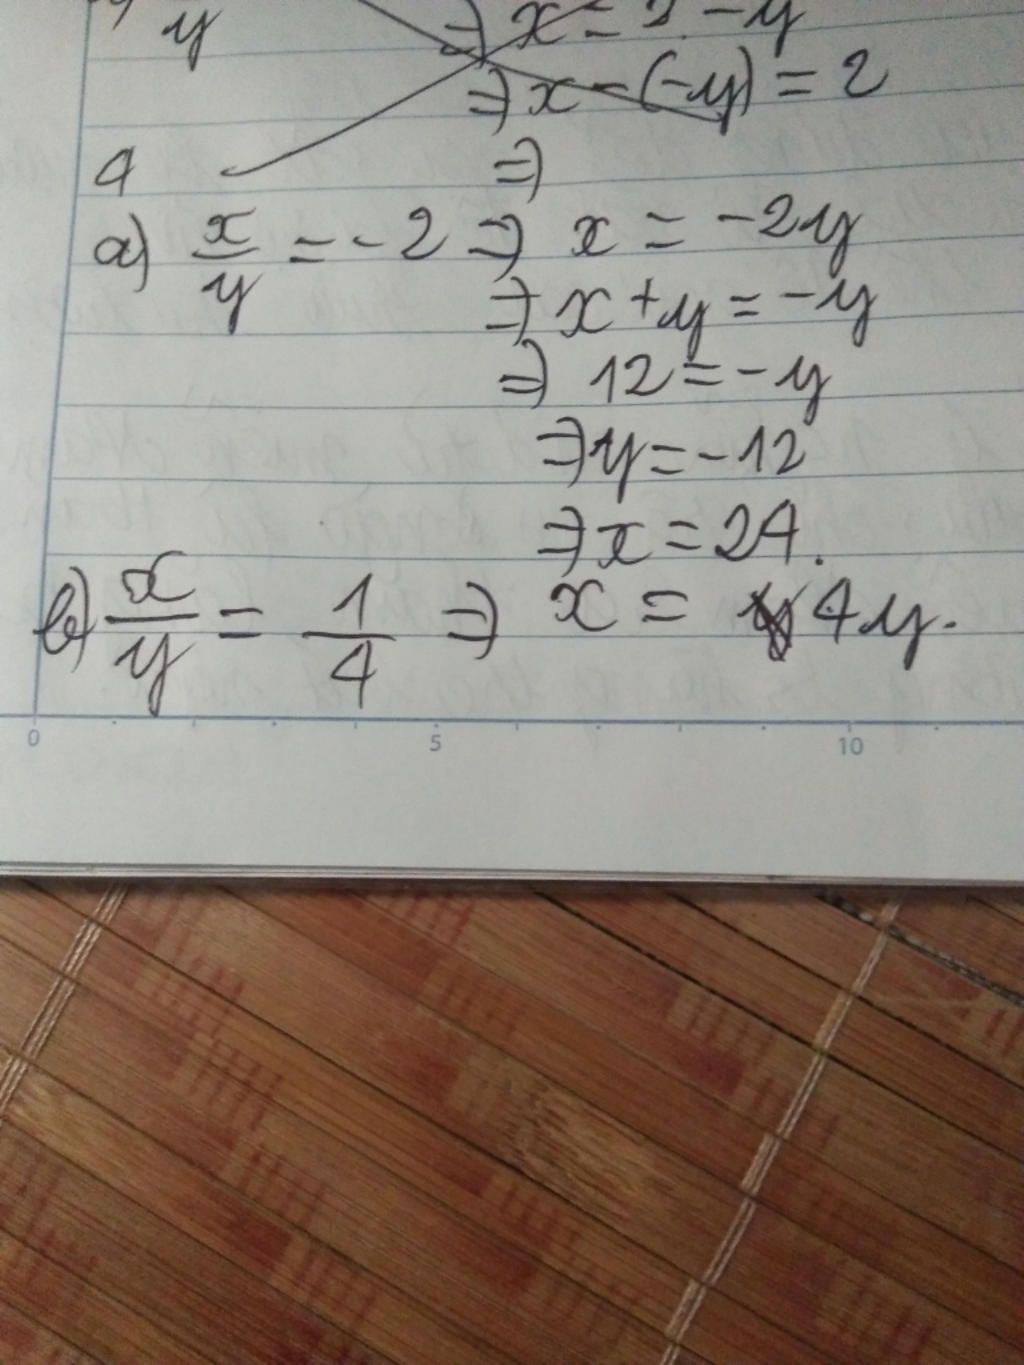 y ⇒ x = 2 - y
⇒ x - (-y) = 2
4 ⇒
a) x/y = -2 ⇒ x = -2y
⇒ x + y = -y
⇒ 12 = -y
⇒ y = -12
⇒ x = 24.
b) x/y = 1/4 ⇒ x = 4y.
0 5 10